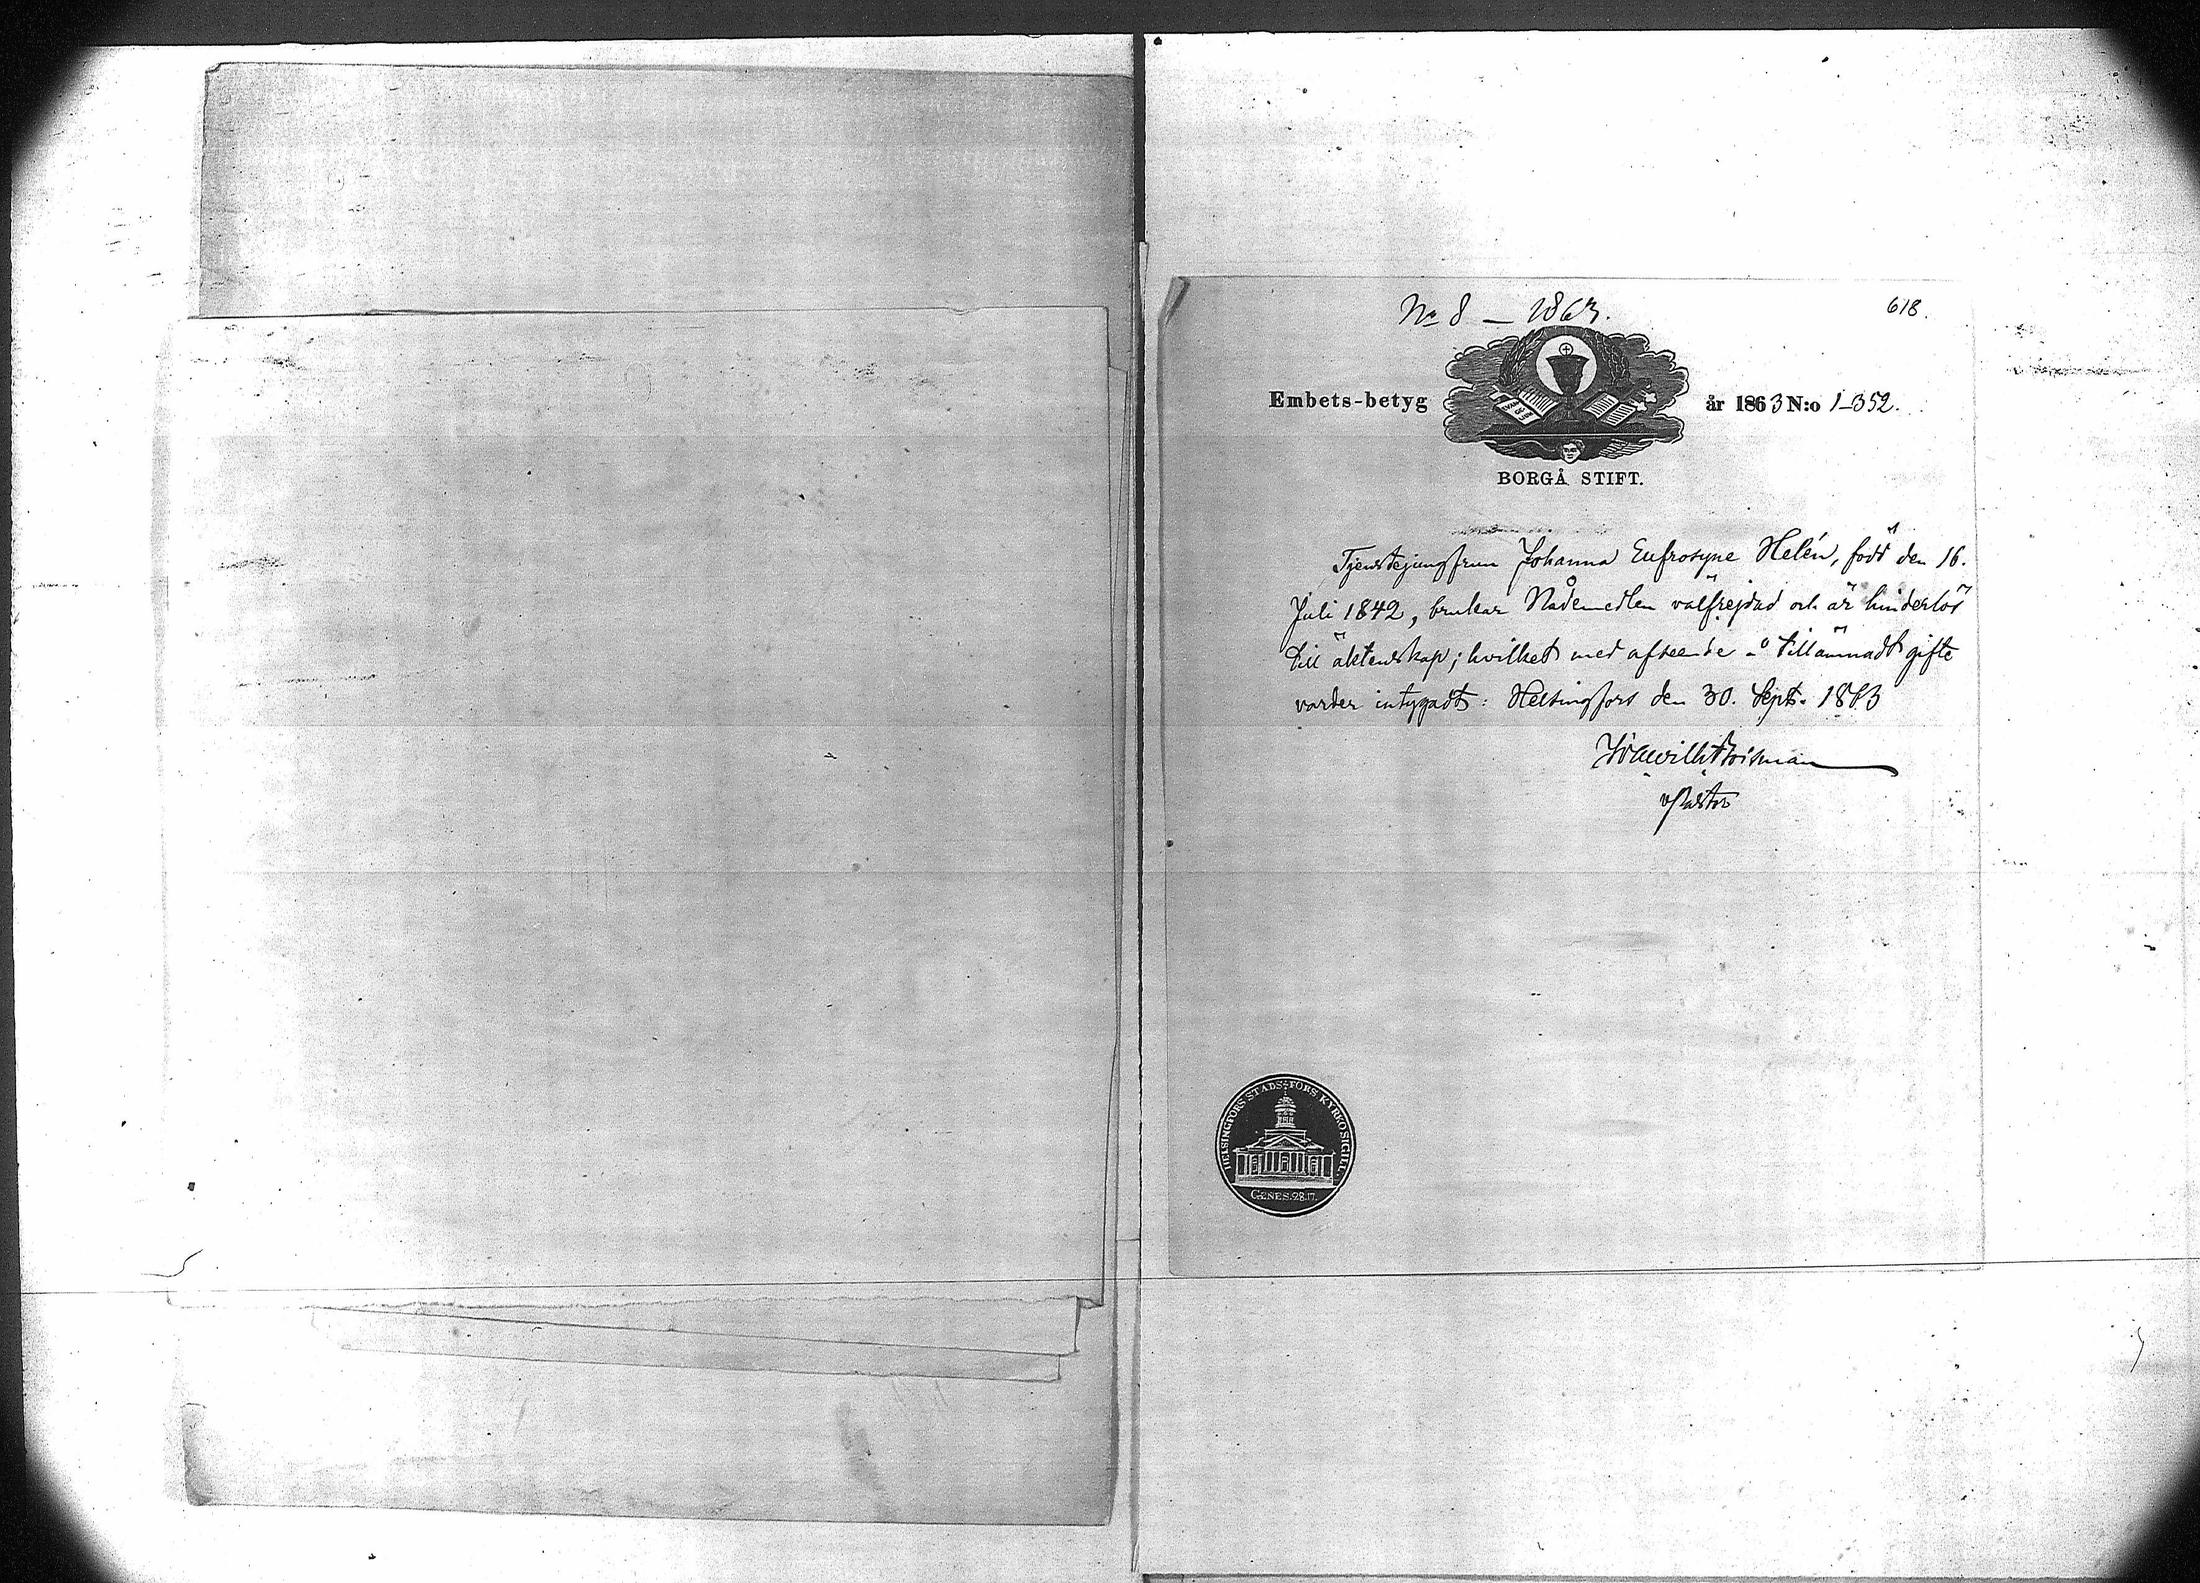 No 8 — 1863.
618.
Embets-betyg
år 1863 N:o 1-352.
EVAN GE LIUM
BORGÅ STIFT.
Tjenstejungfrun Johanna Eufrosyne Helén, född den 16.
Juli 1842, brukar Nådemedlen välfrejdad och är hinderlös
till äktenskap; hvilket med afseende å tillämnadt gifte
varder intygadt: Helsingfors den 30. Sept. 1863
Pastor
HELSINGFORS STADS-FÖRS. KYRKO SIGILL.
GENES. 28.17.